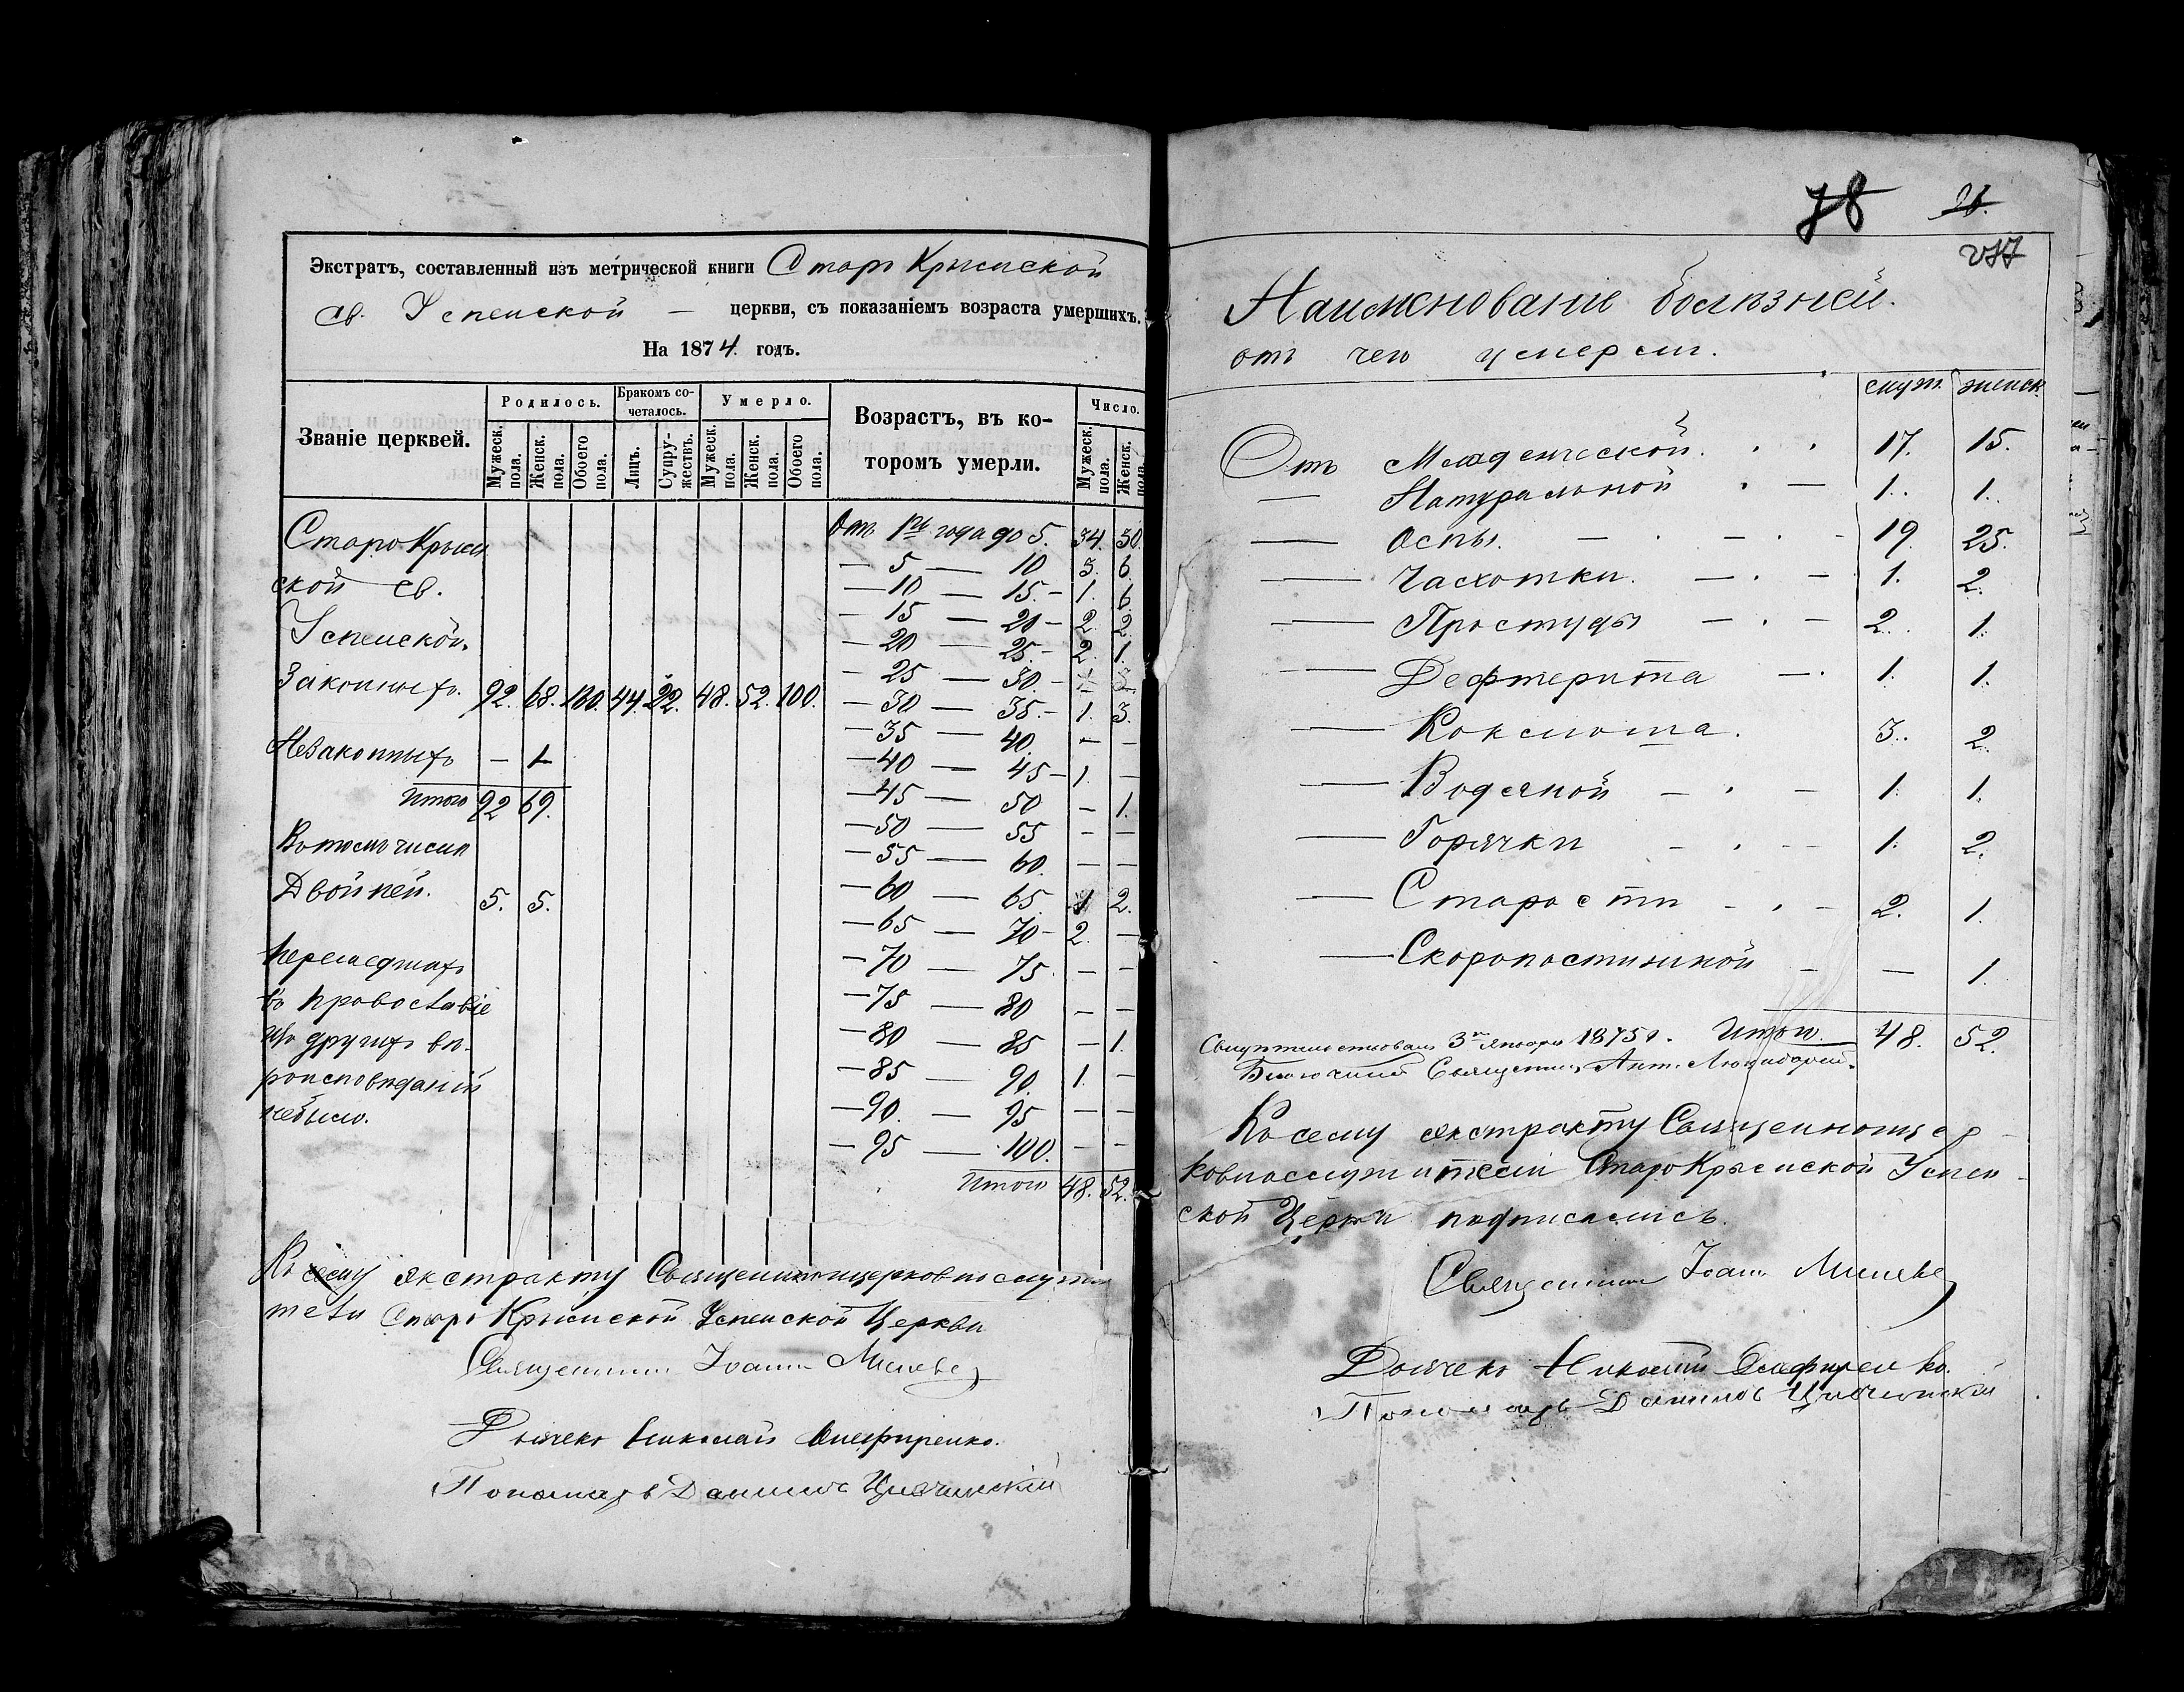 Экстратъ, составленный изъ метрической книги Старо Крымской
св. Успенской — церкви, съ показаніемъ возраста умершихъ.
На 1874. годъ.
Званіе церквей.
Родилось.
Бракомъ со-
четалось.
Умерло.
Возрастъ, въ ко-
торомъ умерли.
Число.
Мужеск. пола.
Женск. пола.
Обоего пола.
Лицъ.
Супру-
жествъ.
Мужеск. пола.
Женск. пола.
Обоего пола.
Мужеск. пола.
Женск. пола.
Старо Крым
ской св.
Успенской.
Законныхъ. 92. 68. 160. 44. 22. 48. 52. 100.
Незаконныхъ — 1
Итого 92 69.
Въ томъ числѣ
Двойней. 5. 5.
Перешедшихъ
въ православіе
изъ другихъ вѣ-
роисповѣданій
небыло.
Отъ 1го года до 5. 34. 30.
— 5 — 10 3. 6.
— 10 — 15. — 1. 6.
— 15 — 20 — 2. 2.
— 20 — 25. — 2. 1.
— 25 — 30. —
— 30 — 35. — 1. 3.
— 35 — 40. — —
— 40 — 45 — 1. —
— 45 — 50 — 1.
— 50 — 55 — —
— 55 — 60. — —
— 60 — 65. 1 2.
— 65 — 70 — 2. —
— 70 — 75. — —
— 75 — 80 — —
— 80 — 85 — 1.
— 85 — 90. 1. —
— 90. — 95 — —
— 95 — 100. — —
Итого 48. 52.
Къ сему экстракту Священноцерковнослужи
тели Старо Крымской Успенской Церкви
Священникъ Іоаннъ
Дьячекъ Николай
Пономарь Даніилъ
78 26.
Наименованіе болѣзней.
отъ чего умерли.
муж. женск.
Отъ Младенческой. . . 17. 15.
— Натуральной . — 1. 1.
— Оспы. — . — . — 19. 25.
— Чахотки. — . — 1. 2.
— Простуды — . — 2. 1.
— Дефтерита — . 1. 1.
— Коклюша. 3. 2.
— Водяной — . — 1. 1.
— Горячки — . — 1. 2.
— Старости — . — 2. 1.
— Скоропостижной — — 1.
Итого. 48. 52.
Свидѣтельствовалъ 3го Января 1875 г.
Благочинный Священникъ Ант.
Къ сему экстракту Священноцер-
ковнослужители Старо Крымской Успен-
ской Церкви подписались.
Священникъ Іоаннъ
Дьячекъ Николай
Пономарь Даніилъ